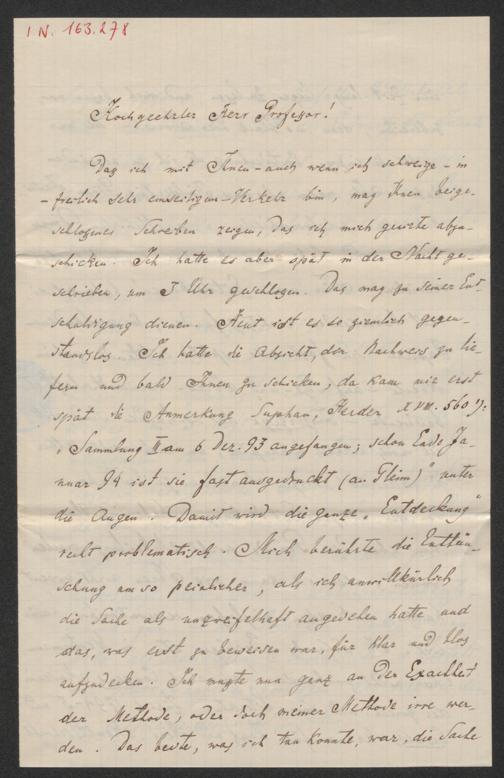 I N. 163.278
Hochgeehrter Herr Professor!
Daß ich mit Ihnen – auch wenn ich schweige – in
– freilich sehr einseitigem – Verkehr bin, mag Ihnen beige-
schlossenes Schreiben zeigen, das ich mich scheute abzu-
schicken. Ich hatte es aber spät in der Nacht ge-
schrieben, um 3 Uhr geschlossen. Das mag zu seiner Ent-
schuldigung dienen. Heut ist es so ziemlich gegen-
standslos. Ich hatte die Absicht, den Nachweis zu lie-
fern und bald Ihnen zu schicken, da kam mir erst
spät die Anmerkung Suphan, Herder XVIII. 560 1):
„Sammlung II am 6 Dez. 93 angefangen; schon Ende Ja-
nuar 94 ist sie fast ausgedruckt (an Gleim)“ unter
die Augen. Damit wird die ganze „Entdeckung“
recht problematisch. Mich berührte die Enttäu-
schung um so peinlicher, als ich unwillkürlich
die Sache als unzweifelhaft angesehen hatte und
das, was erst zu beweisen war, für klar und blos
aufzudecken. Ich mußte nun ganz an der Exactheit
der Methode, oder doch meiner Methode irre wer-
den. Das beste, was ich tun konnte, war, die Sache